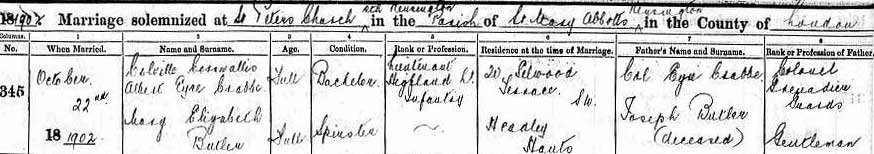 1902 Marriage solemnized at St Peters Church sth Kensington in the Parish of St Mary Abbotts Kensington in the County of London
Columns. 1 2 3 4 5 6 7 8
No. When Married. Name and Surname. Age. Condition. Rank or Profession. Residence at the time of Marriage. Father's Name and Surname. Rank or Profession of Father.
345 October 22nd 18 1902
Colville Cornwallis Albert Eyre Crabbe Full Bachelor Lieutenant Highland Lt. Infantry 20 Selwood Terrace SW. Col Eyre Crabbe Colonel Grenadier Guards
Mary Elizabeth Butler Full Spinster ~ Headley Hants Joseph Butler (deceased) Gentleman